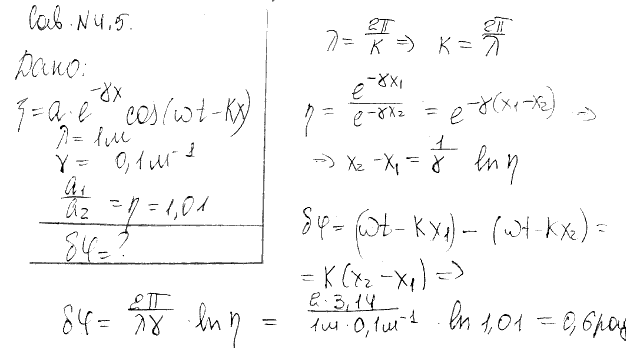 Сав. N4.5.
Дано:
ξ = a·e^{-γx} cos(ωt - Kx)
λ = 1м
γ = 0,1м^{-1}
a₁/a₂ = η = 1,01
δφ = ?
λ = 2π/K ⇒ K = 2π/λ
η = e^{-γx₁}/e^{-γx₂} = e^{-γ(x₁-x₂)} ⇒
⇒ x₂ - x₁ = 1/γ ln η
δφ = (ωt - Kx₁) - (ωt - Kx₂) =
= K(x₂ - x₁) ⇒
δφ = 2π/λγ · ln η = 2·3,14/1м·0,1м^{-1} · ln 1,01 = 0,6рад